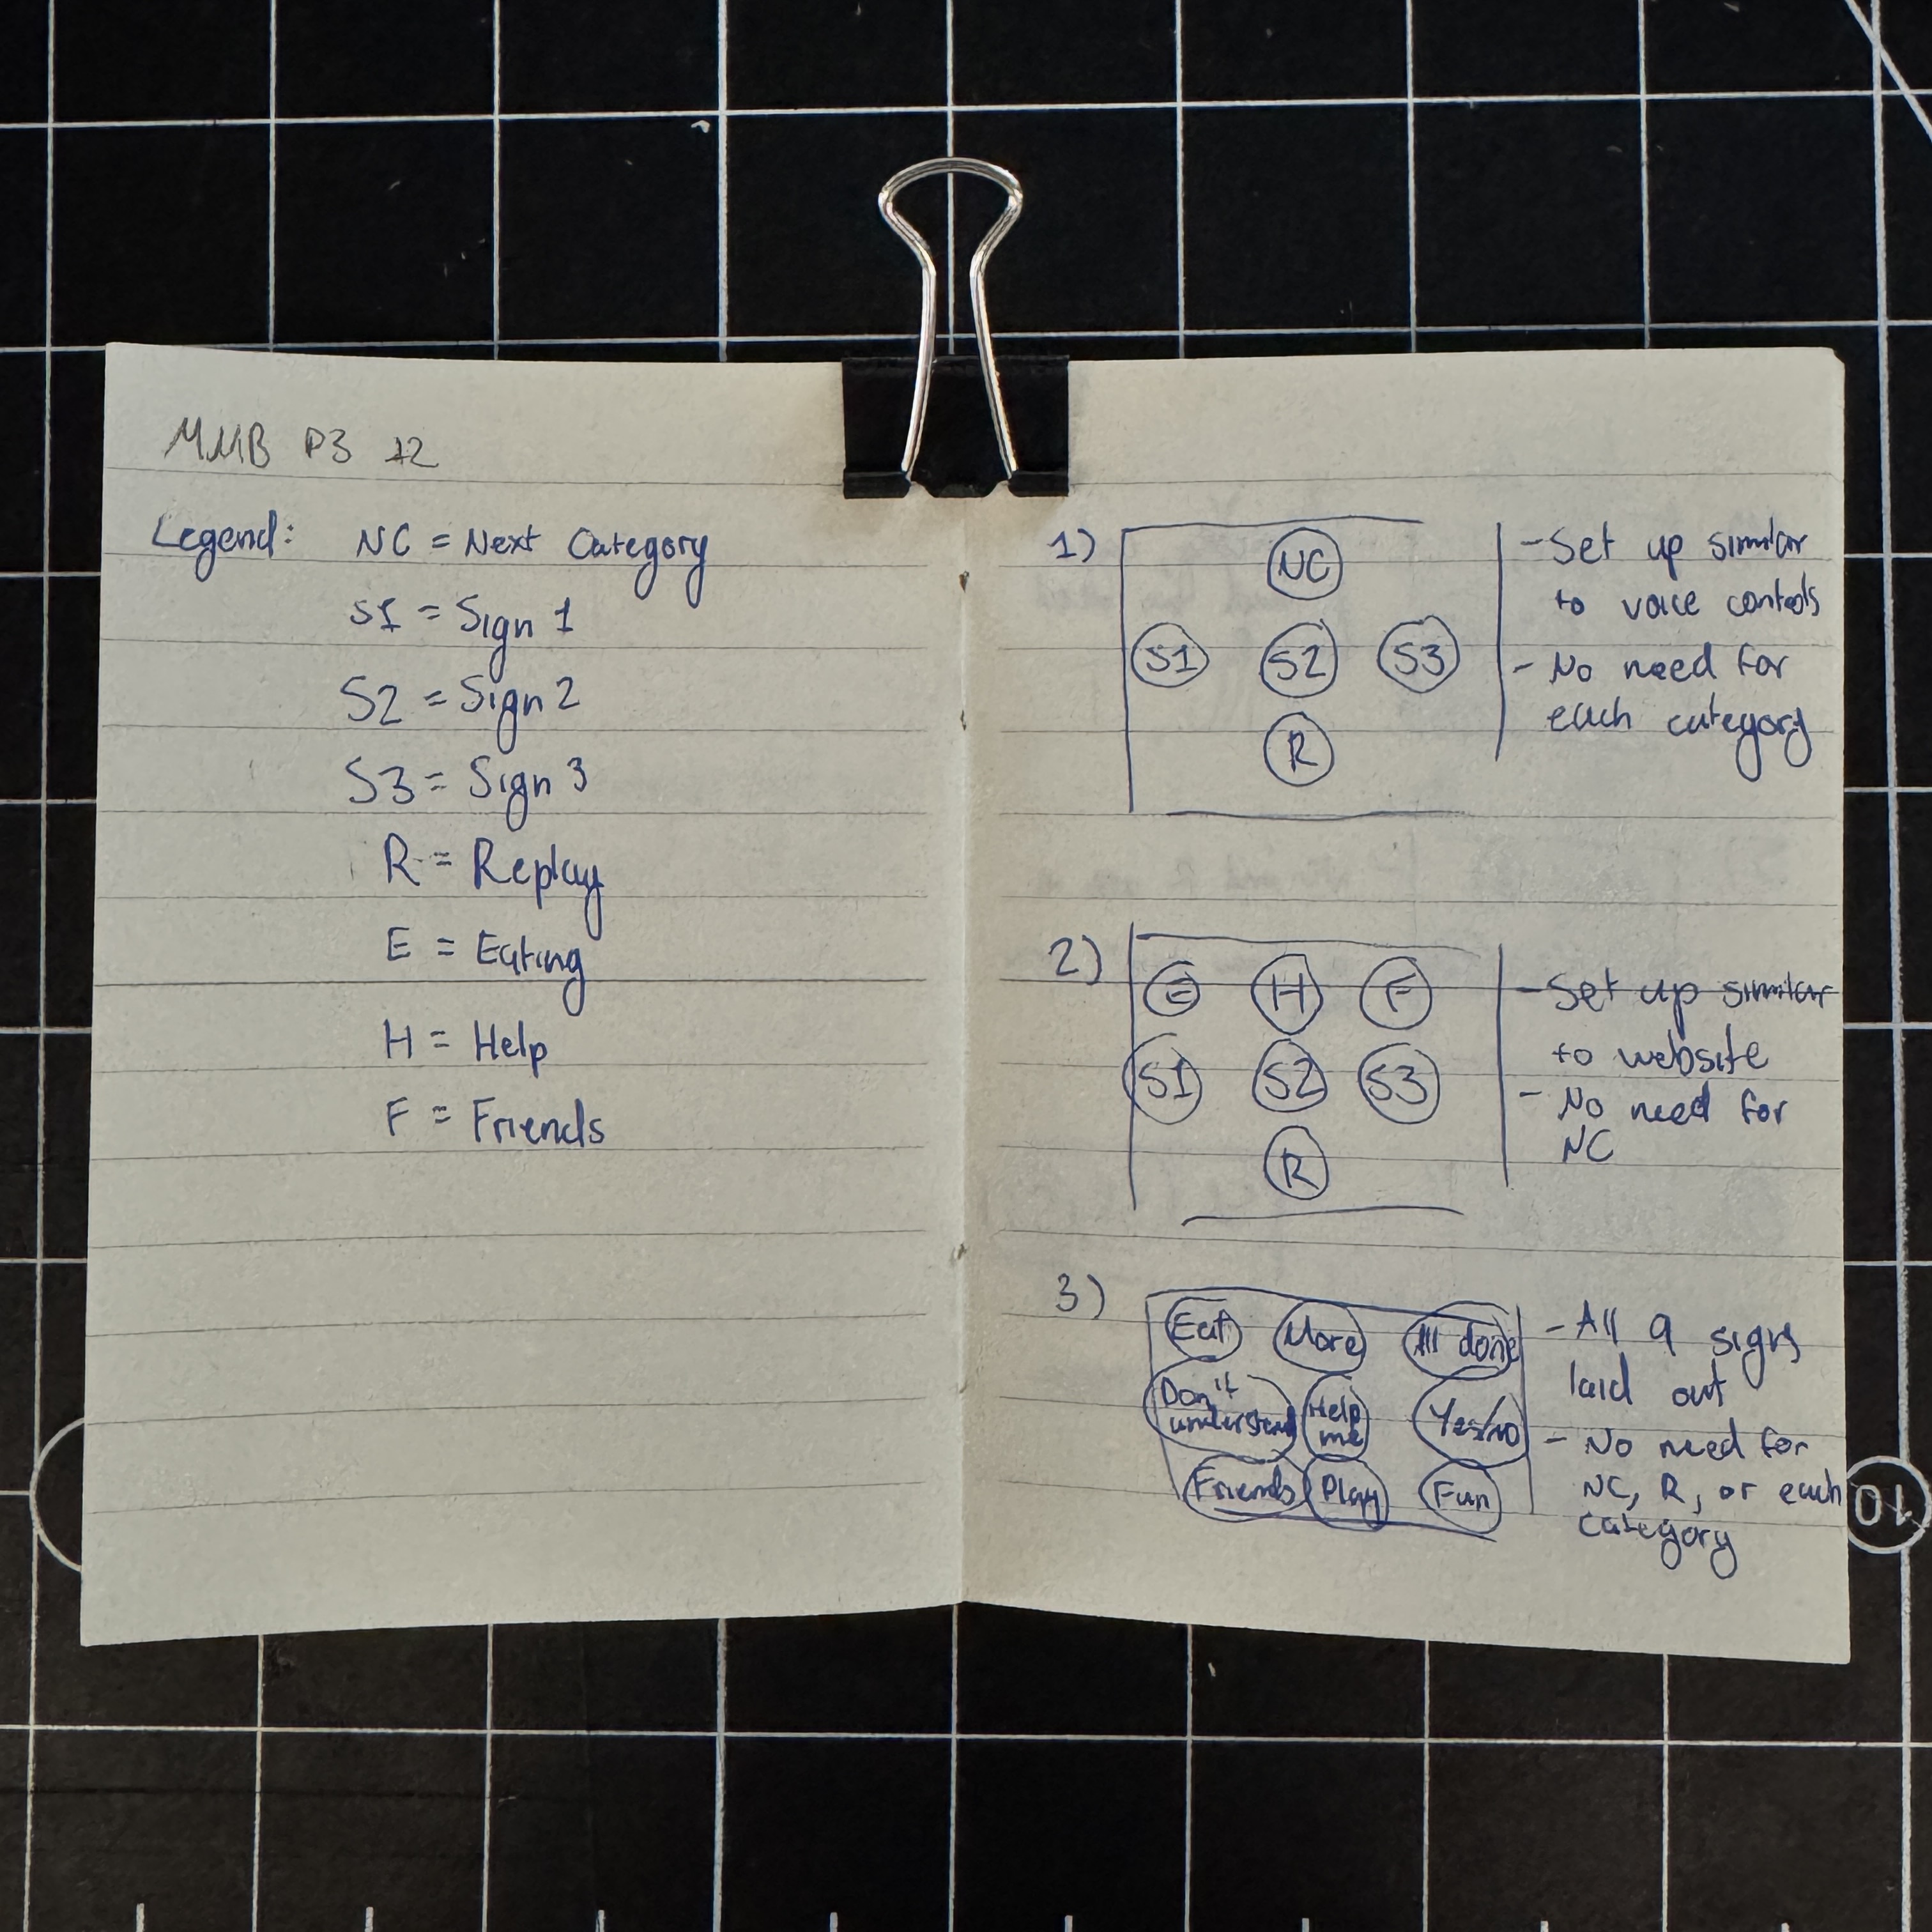 MMB P3 12
Legend: NC = Next Category
S1 = Sign 1
S2 = Sign 2
S3 = Sign 3
R = Replay
E = Eating
H = Help
F = Friends
1)
NC
S1 S2 S3
R
- Set up similar
to voice controls
- No need for
each category
2)
E H F
S1 S2 S3
R
- Set up similar
to website
- No need for
NC
3)
Eat More All done
Don't understand Help me Yes/no
Friends Play Fun
- All 9 signs
laid out
- No need for
NC, R, or each
category
10